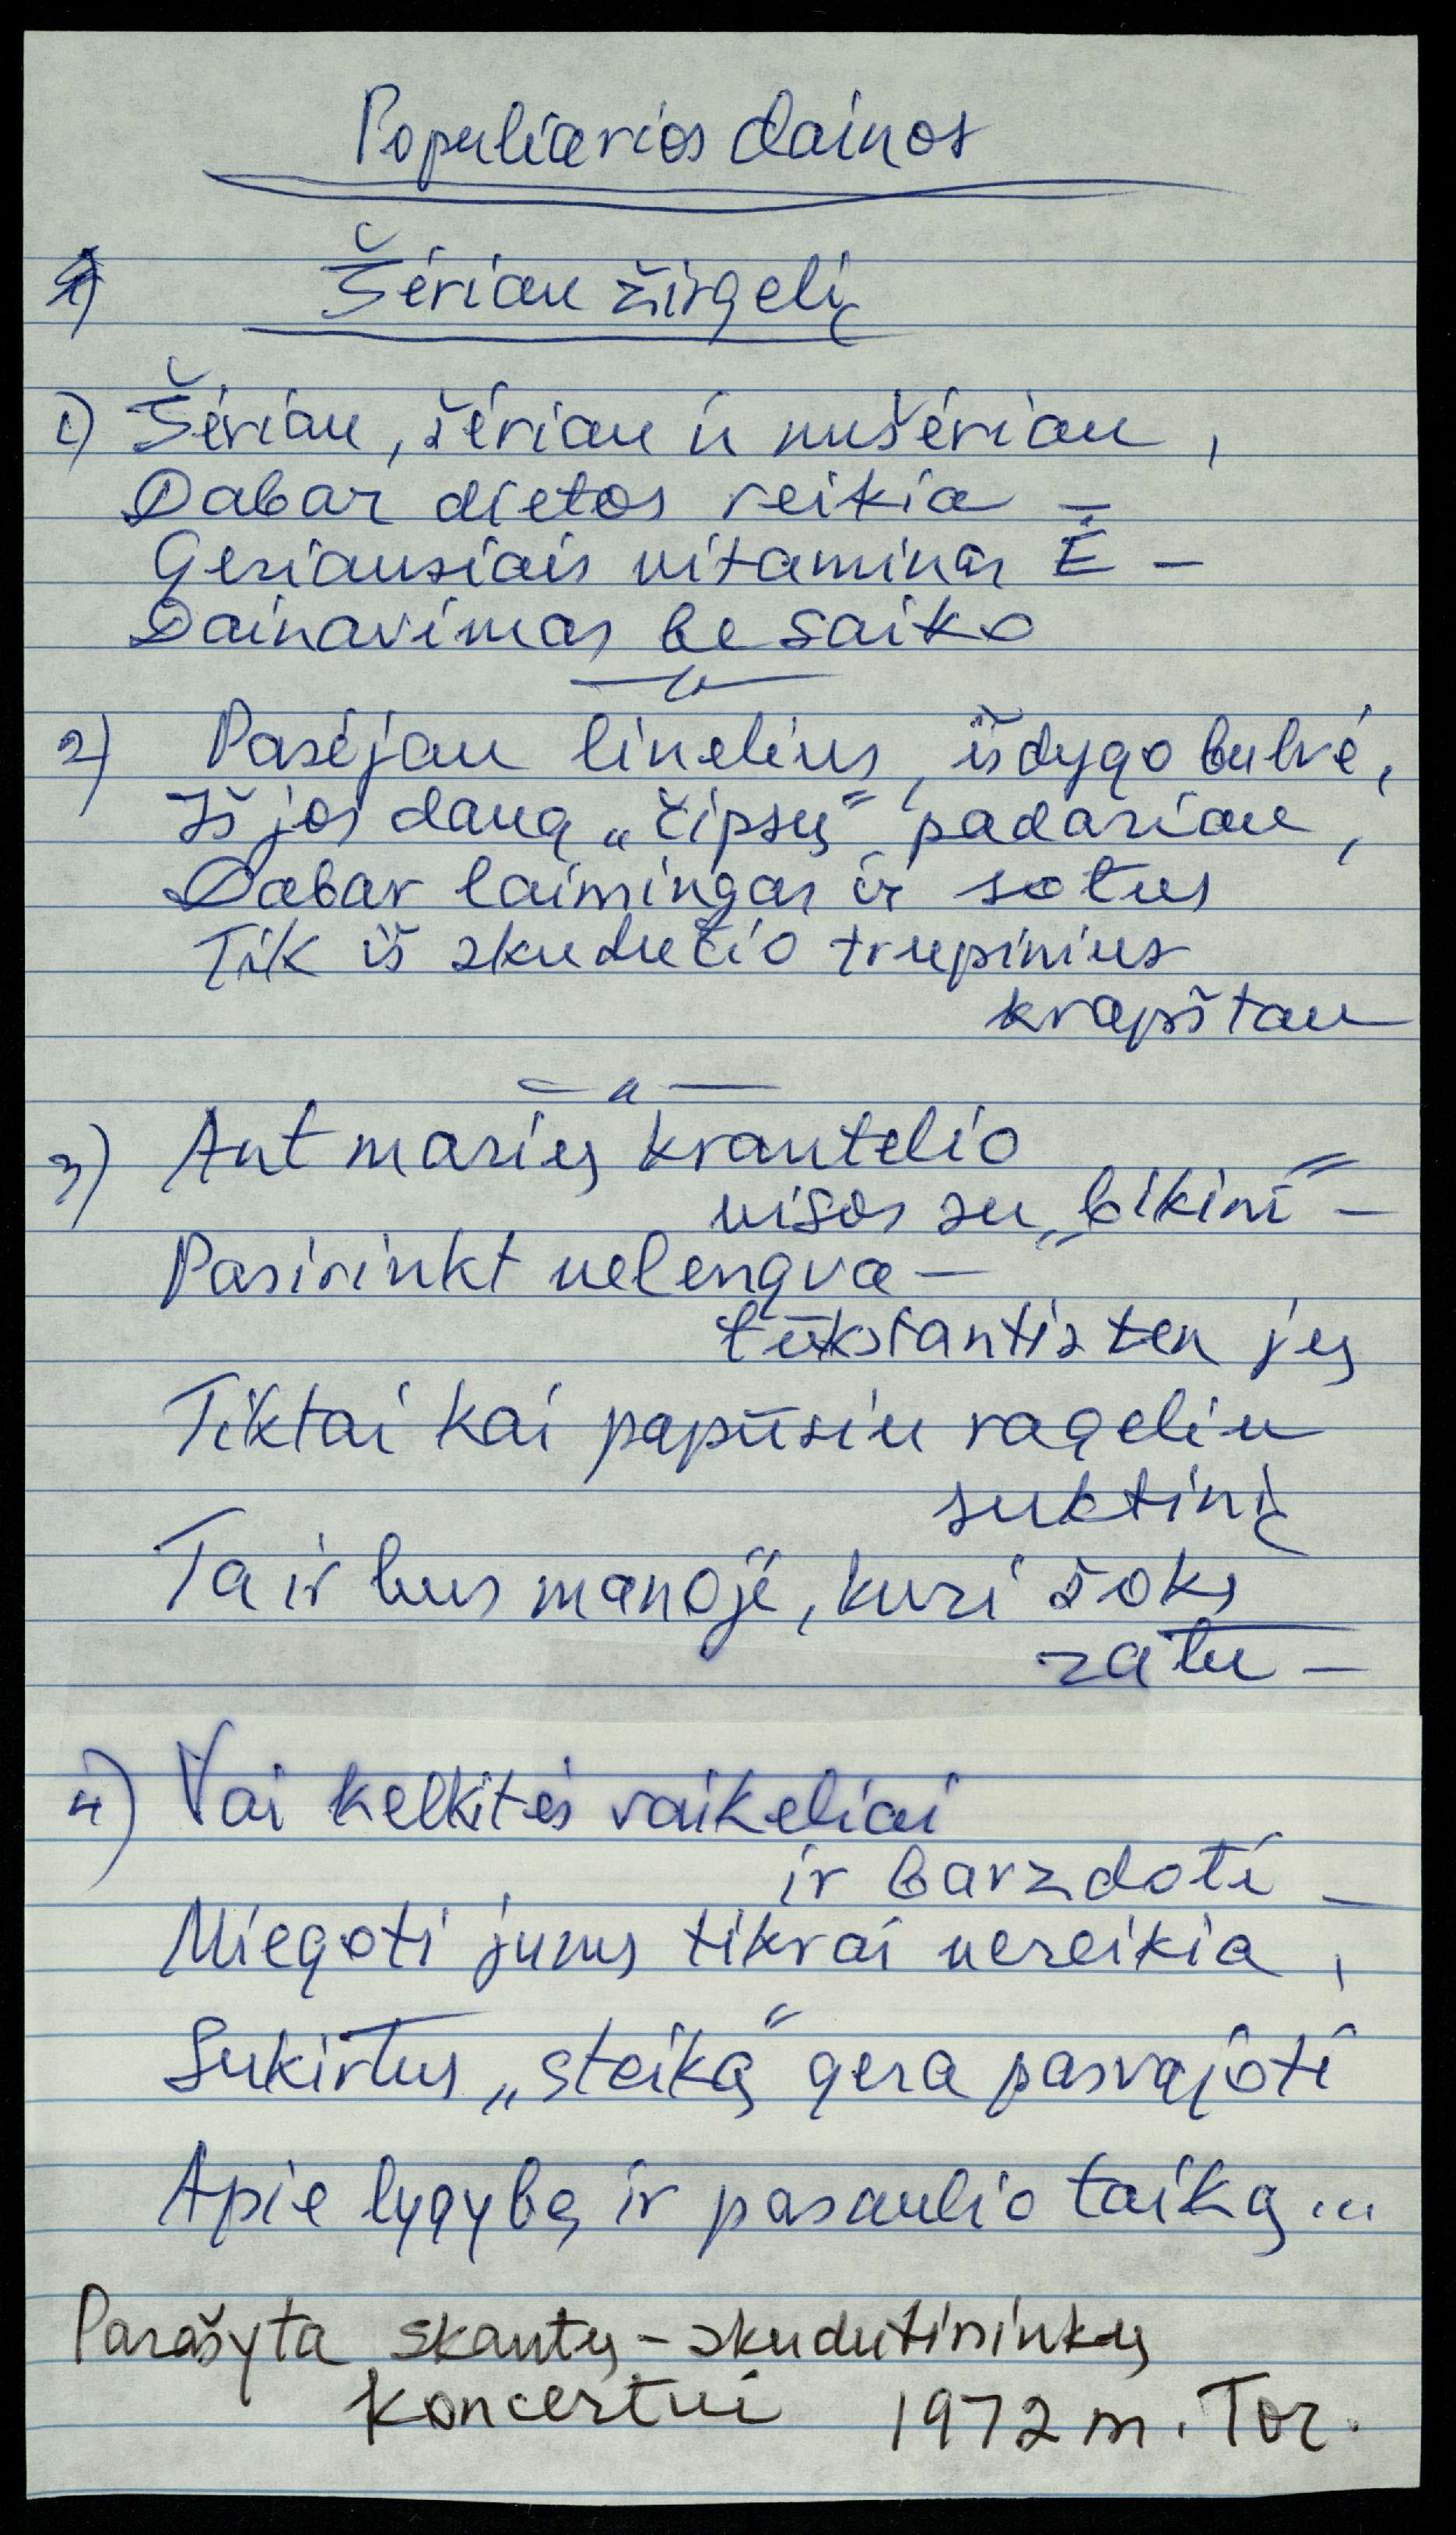 Populiarios dainos
Šėriau žirgelį
1) Šėriau, šėriau ir nušėriau,
Dabar dietos reikia –
Geriausiais vitaminas Ė –
Dainavimas be saiko
2) Pasėjau linelius, išdygo bulvė,
Iš jos daug „čipsų" padariau,
Dabar laimingas ir sotus
Tik iš skudučio trupinius
krapštau
3) Ant marių krantelio
visos su „bikini" –
Pasirinkt nelengva –
tūkstantis ten jų
Tiktai kai papūsiu rageliu
suktinį
Ta ir bus manoji, kuri šoks
ratu –
4) Vai kelkitės vaikeliai
ir barzdoti –
Miegoti jums tikrai nereikia,
Sukirtus „steiką" gera pasvajoti
Apie lygybę ir pasaulio taiką...
Parašyta skautų-skudutininkų
koncertui 1972 m. Tor.